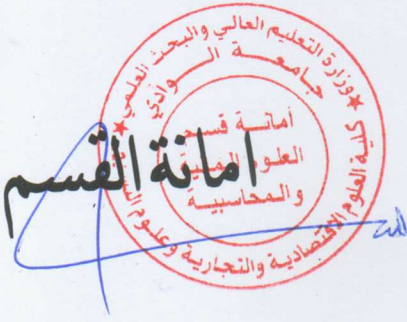 وزارة التعليم العالي والبحث العلمي
جامعـــة الـــوادي
أمانـــة قســـم
العلوم المالية
والمحاسبيـــة
كلية العلوم الاقتصادية والتجارية وعلوم
امانة القسم